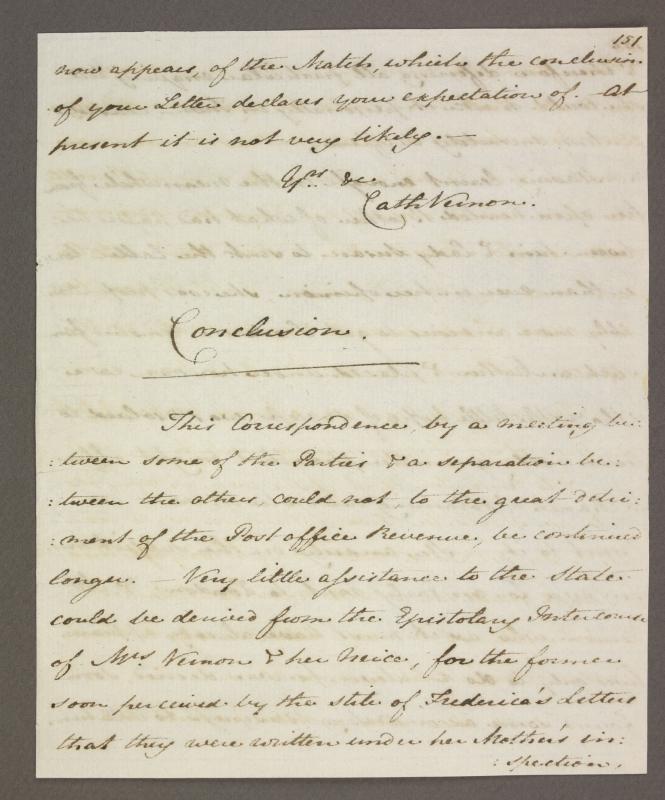 151
now appears, of the Match, which the conclusion
of your Letter declares your expectation of. At
present it is not very likely. —
Yrs. &c.
Cath Vernon.
Conclusion.
This Correspondence, by a meeting be:
:tween some of the Parties & a separation be:
:tween the others, could not, to the great detri:
:ment of the Post office Revenue, be continued
longer. — Very little assistance to the State
could be derived from the Epistolary Intercourse
of Mrs Vernon & her Neice, for the former
soon perceived by the stile of Frederica's Letters
that they were written under her Mother's in:
:spection,